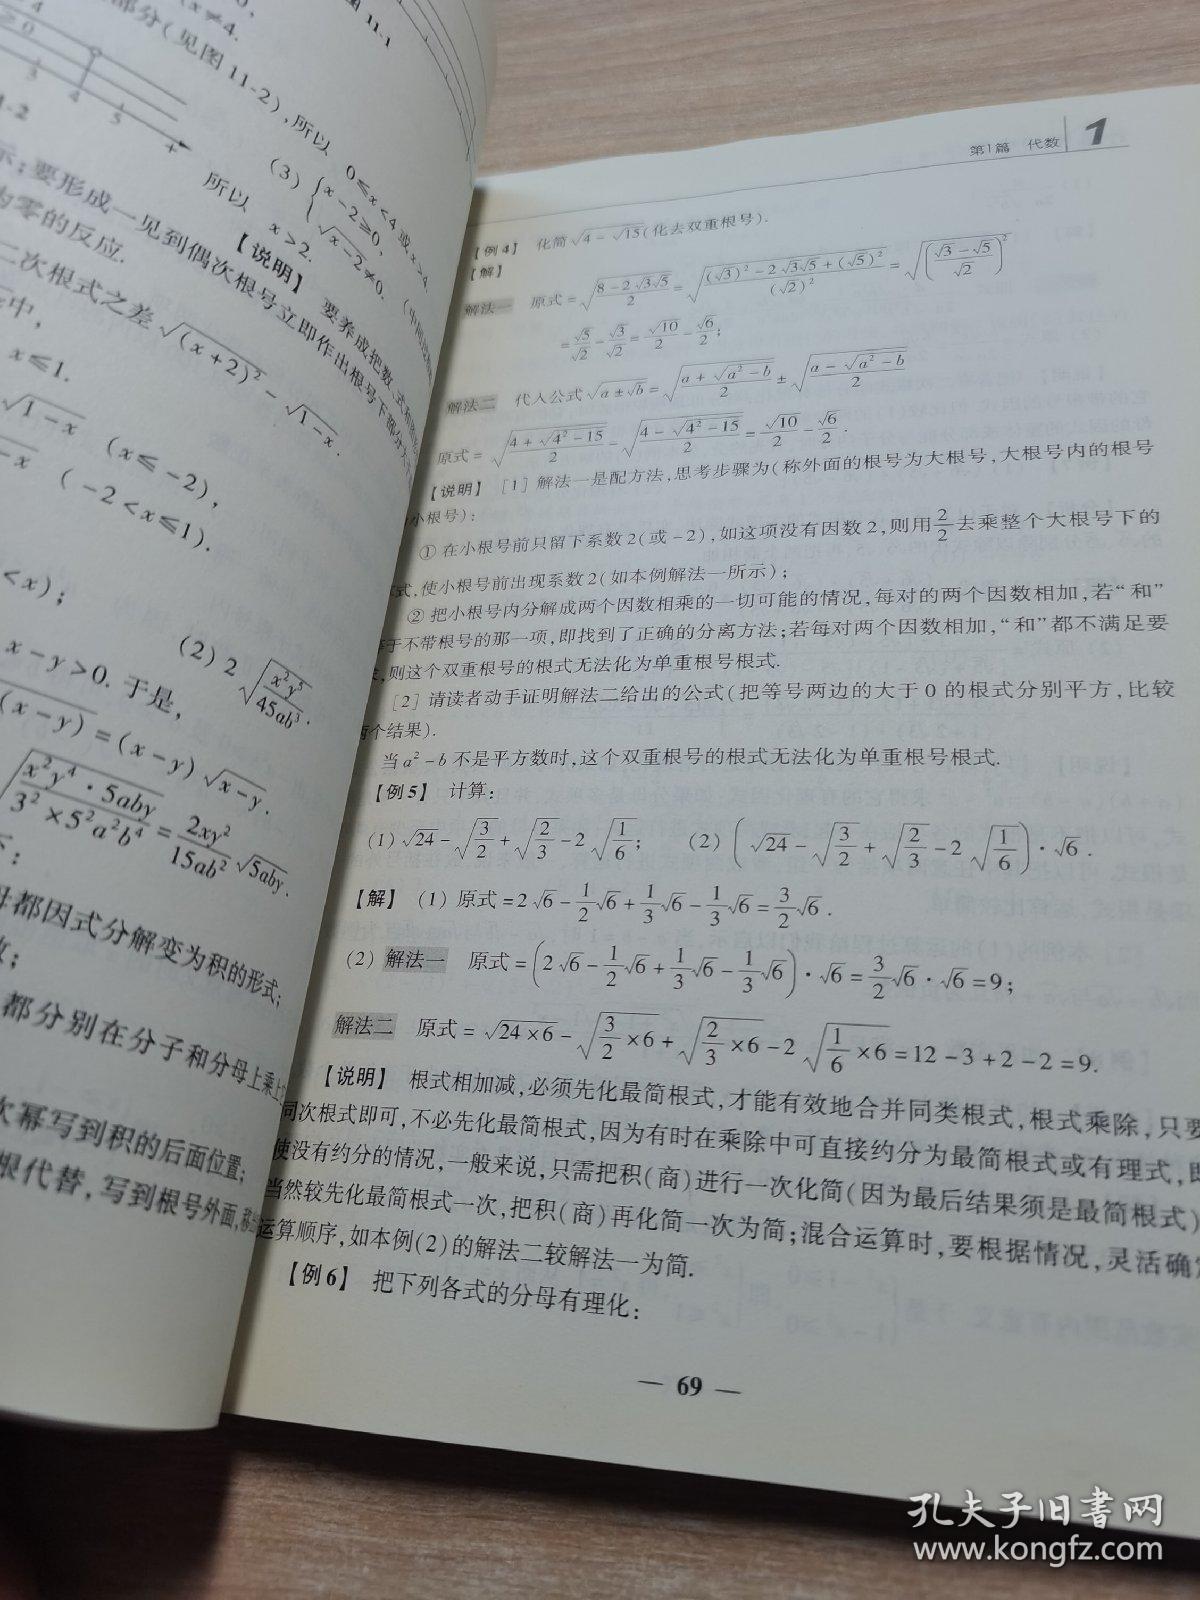 图11-1
x≠4.
部分(见图11-2),所以 0≤x<4或x>4.
3 4 5
(3) {x-2≥0, √x-2≠0.
所以 x>2.
示:要形成一见到偶次根号立即作出根号下部分
为零的反应.
【说明】 要养成把数
二次根式之差√(x+2)² - √1-x.
中,
x≤1.
√1-x (x≤-2),
-x (-2<x≤1).
<x);
(2) 2√x²y⁵/45ab³.
x-y>0. 于是,
(x-y)=(x-y)√x-y.
√x²y⁴·5aby/3²×5²a²b⁴=2xy²/15ab²√5aby.
母都因式分解变为积的形式;
数;
都分别在分子和分母上乘上
次幂写到积的后面位置;
根代替,写到根号外面,
第1篇 代数 1
【例4】 化简√4-√15(化去双重根号).
【解】
解法一 原式=√(8-2√3√5)/2=√((√3)²-2√3√5+(√5)²)/(√2)²=√((√3-√5)/√2)²
=√5/√2-√3/√2=√10/2-√6/2;
解法二 代入公式√a±√b=√(a+√a²-b)/2±√(a-√a²-b)/2
原式=√(4+√4²-15)/2-√(4-√4²-15)/2=√10/2-√6/2.
【说明】 [1]解法一是配方法,思考步骤为(称外面的根号为大根号,大根号内的根号
小根号):
①在小根号前只留下系数2(或-2),如这项没有因数2,则用2/2去乘整个大根号下的
式,使小根号前出现系数2(如本例解法一所示);
②把小根号内分解成两个因数相乘的一切可能的情况,每对的两个因数相加,若“和”
等于不带根号的那一项,即找到了正确的分离方法;若每对两个因数相加,“和”都不满足要
,则这个双重根号的根式无法化为单重根号根式.
[2]请读者动手证明解法二给出的公式(把等号两边的大于0的根式分别平方,比较
两个结果).
当a²-b不是平方数时,这个双重根号的根式无法化为单重根号根式.
【例5】 计算:
(1)√24-√3/2+√2/3-2√1/6; (2)(√24-√3/2+√2/3-2√1/6)·√6.
【解】 (1)原式=2√6-1/2√6+1/3√6-1/3√6=3/2√6.
(2)解法一 原式=(2√6-1/2√6+1/3√6-1/3√6)·√6=3/2√6·√6=9;
解法二 原式=√24×6-√3/2×6+√2/3×6-2√1/6×6=12-3+2-2=9.
【说明】 根式相加减,必须先化最简根式,才能有效地合并同类根式,根式乘除,只要
同次根式即可,不必先化最简根式,因为有时在乘除中可直接约分为最简根式或有理式,即
使没有约分的情况,一般来说,只需把积(商)进行一次化简(因为最后结果须是最简根式)
当然较先化最简根式一次,把积(商)再化简一次为简;混合运算时,要根据情况,灵活确定
运算顺序,如本例(2)的解法二较解法一为简.
【例6】 把下列各式的分母有理化:
— 69 —
孔夫子旧书网
www.kongfz.com